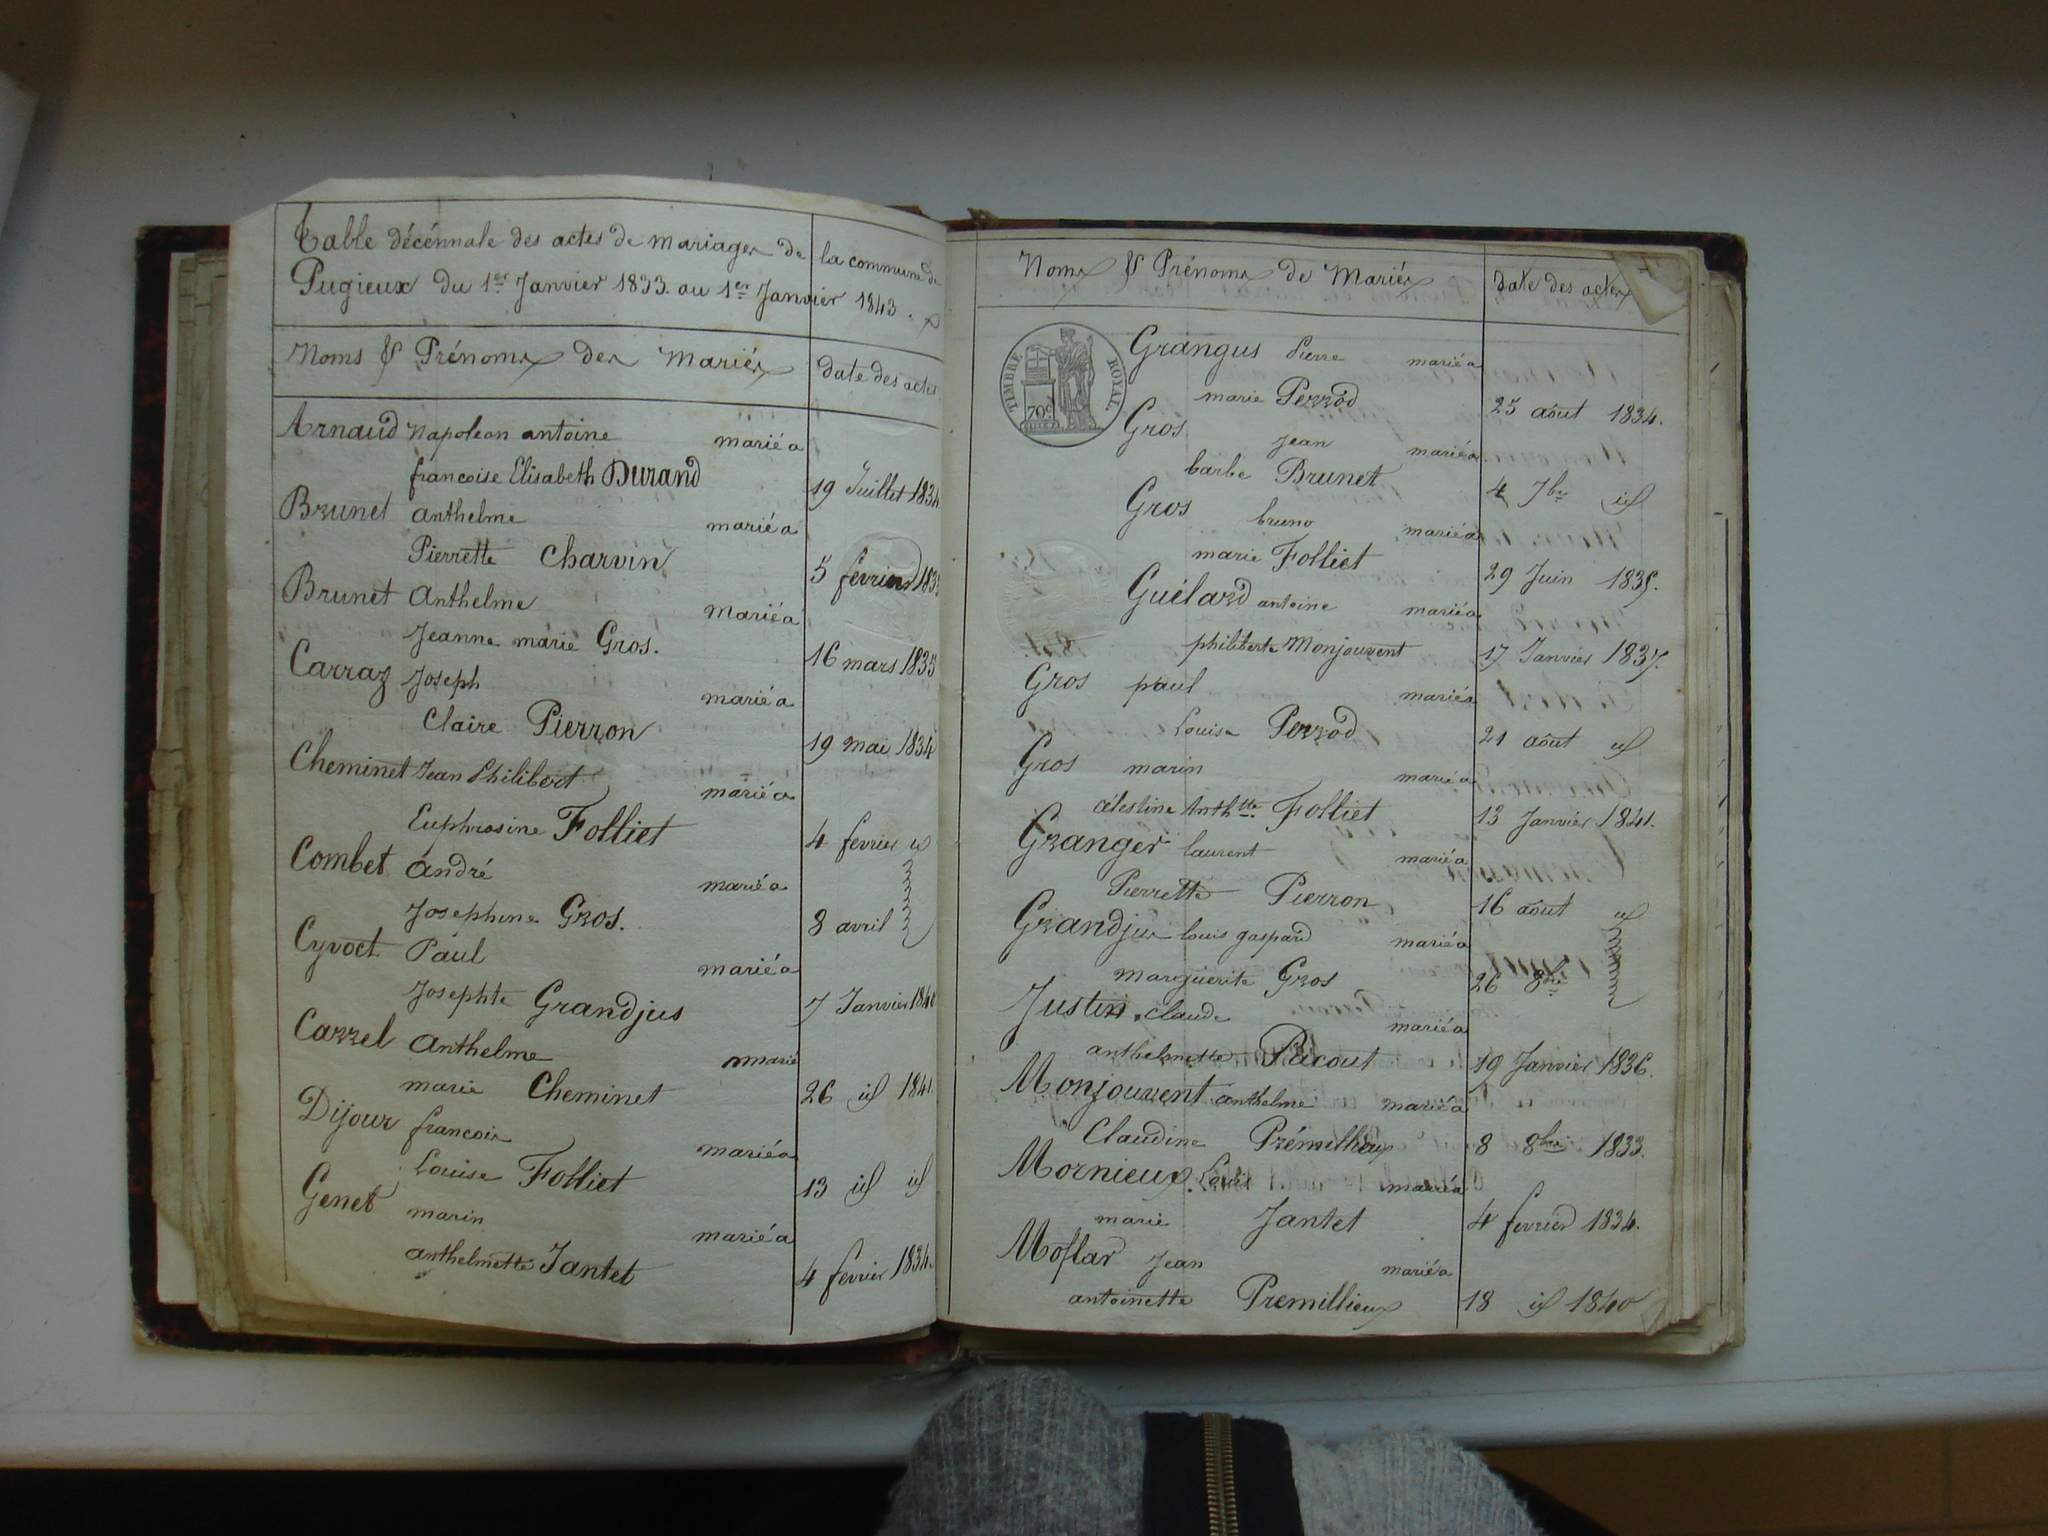 Table décénnale des actes de mariages de la commune de
Pugieux du 1er Janvier 1833. au 1er Janvier 1843.
Noms & Prénoms des Mariés date des actes
Arnaud Napoleon antoine marié a
francoise Elisabeth Durand 19 Juillet 1834
Brunet anthelme marié a
Pierrette Charvin 5 fevrier
Brunet Anthelme Marié a
Jeanne marie Gros. 16 mars 1835
Carraz Joseph marié a
Claire Pierron 19 mai 1834
Cheminet Jean Philibert marié a
Euphrosine Folliet 4 fevrier id
Combet André marié a
Josephine Gros. 8 avril
Cyvoct Paul marié a
Josephte Grandjus 7 Janvier 1840
Carrel Anthelme marié
marie Cheminet 26 id 1841.
Dijoux francois marié a
Louise Folliet 13 id id
Genet marin marié a
anthelmette Jantet 4 fevrier 1834.
Noms & Prénoms de Mariés date des actes
TIMBRE ROYAL.
70c
Grangus Pierre marié a
marie Perrod 25 août 1834.
Gros Jean marié a
barbe Brunet 4 7bre id
Gros bruno marié a
marie Folliet 29 Juin 1835.
Guélard antoine marié a
philiberte Monjouvent 17 Janvier 1837.
Gros paul marié a
Louise Perrod 21 août id
Gros marin marié a
célestine Anthtte. Folliet 13 Janvier 1841.
Granger laurent marié a
Pierrette Pierron 16 août id
Grandjus louis gaspard marié a
marguerite Gros 26 8bre
Justin claude marié a
anthelmette Pacout 19 Janvier 1836.
Monjouvent anthelme marié a
Claudine Prémilieux 8 8bre 1833.
Mornieux Louis marié a
marie Jantet 4 fevrier 1834.
Moflar Jean marié a
antoinette Premillieux 18 id 1840